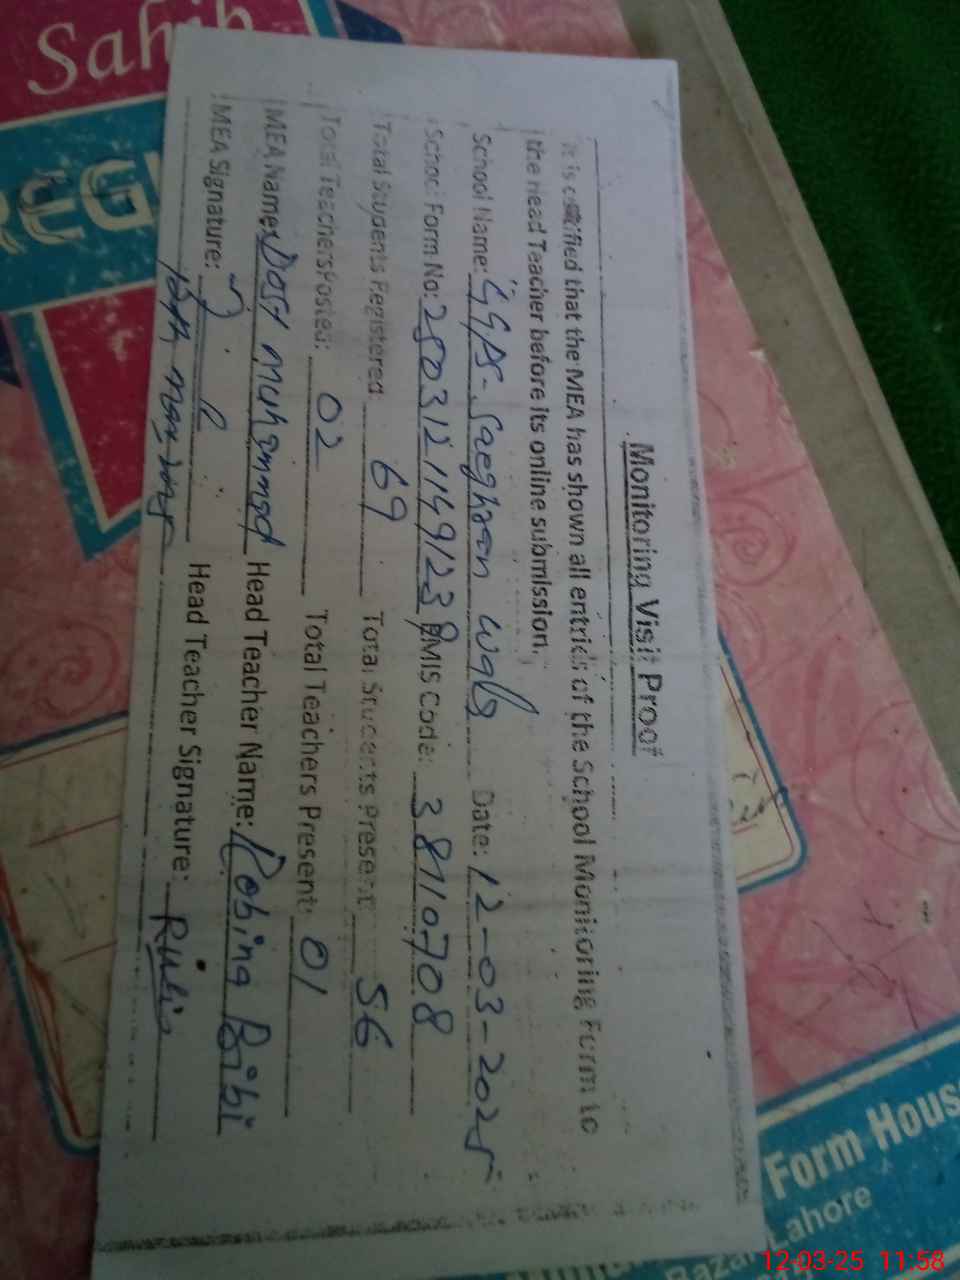 Sahib
REGI
Monitoring Visit Proof
It is certified that the MEA has shown all entries of the School Monitoring Form to
the Head Teacher before its online submission.
School Name: GGPS. Saeghran wala Date: 12-03-2025
School Form No: EMIS Code: 38110708
Total Students Registered 69 Total Students Present 56
Total Teachers Posted: 02 Total Teachers Present: 01
MEA Name: Dost Muhammad Head Teacher Name: Robina Bibi
MEA Signature: Head Teacher Signature:
Form Hous
Bazar Lahore
12-03-25 11:58